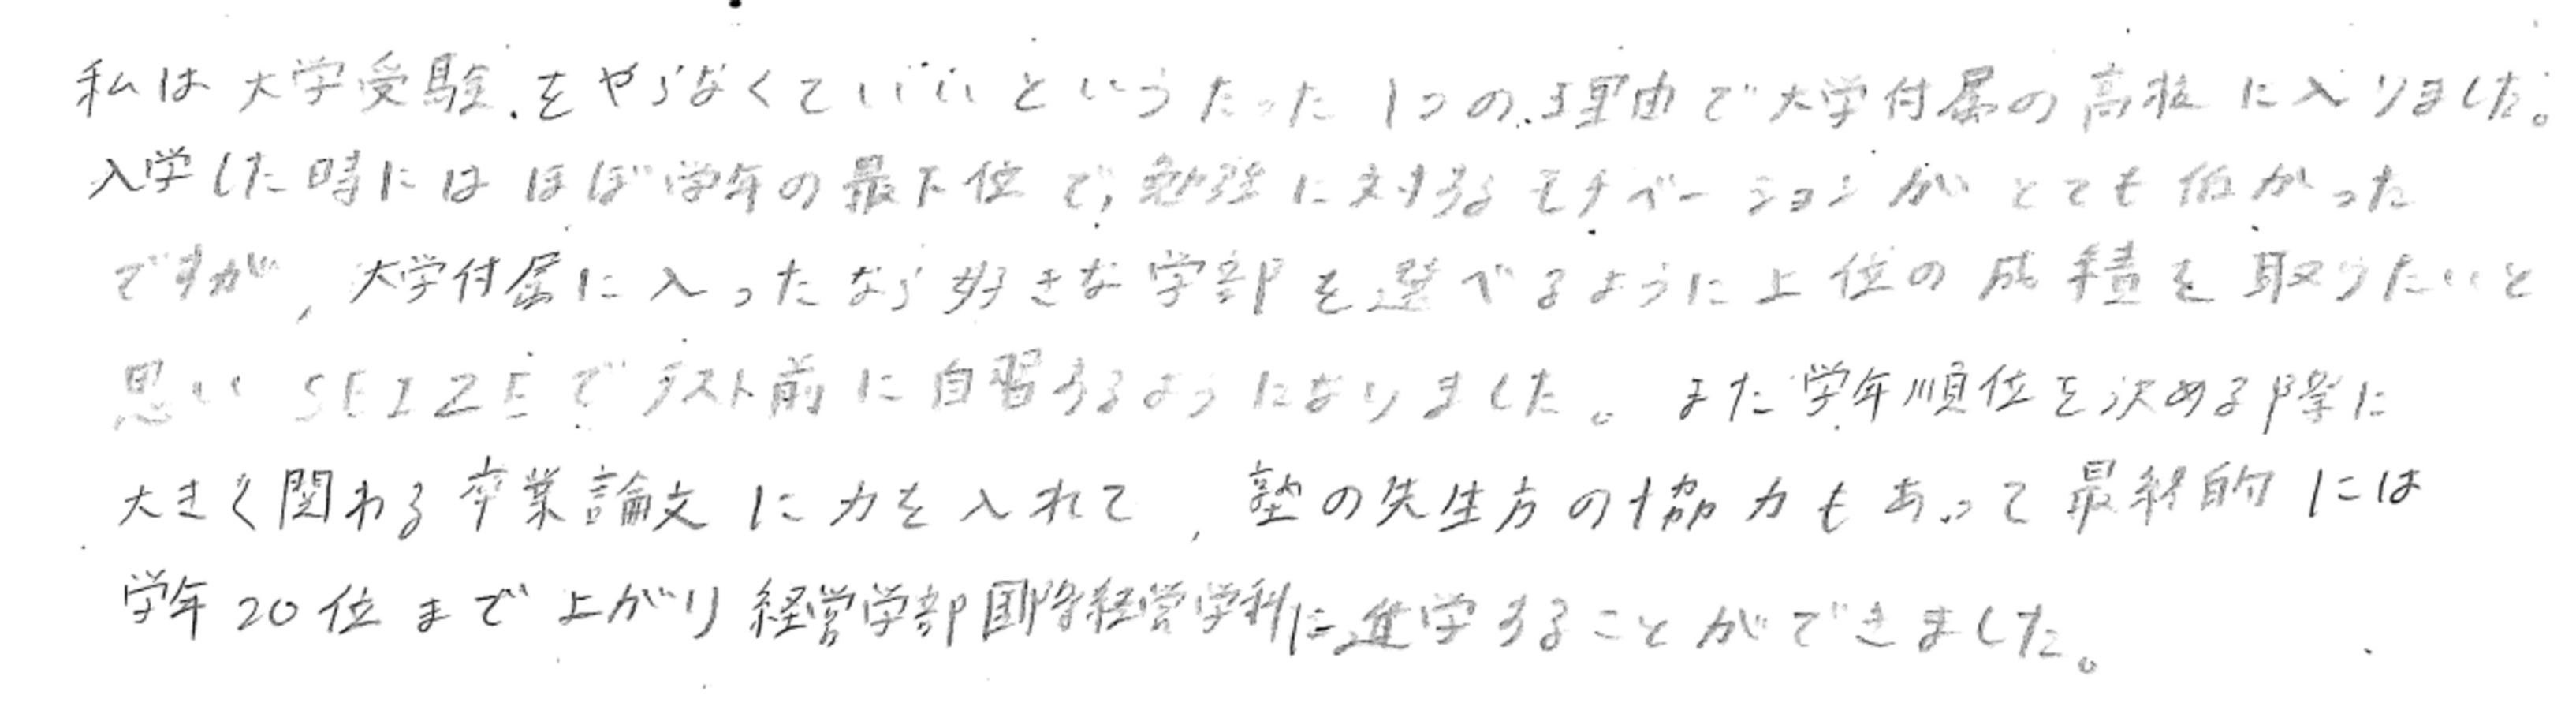 私は大学受験をやらなくていいというたった1つの理由で大学付属の高校に入りました。
入学した時にはほぼ学年の最下位で,勉強に対するモチベーションがとても低かった
ですが,大学付属に入ったなら好きな学部を選べるように上位の成績を取りたいと
思いSEIZEでテスト前に自習するようになりました。また学年順位を決める際に
大きく関わる卒業論文に力を入れて,塾の先生方の協力もあって最終的には
学年20位まで上がり経営学部国際経営学科に進学することができました。